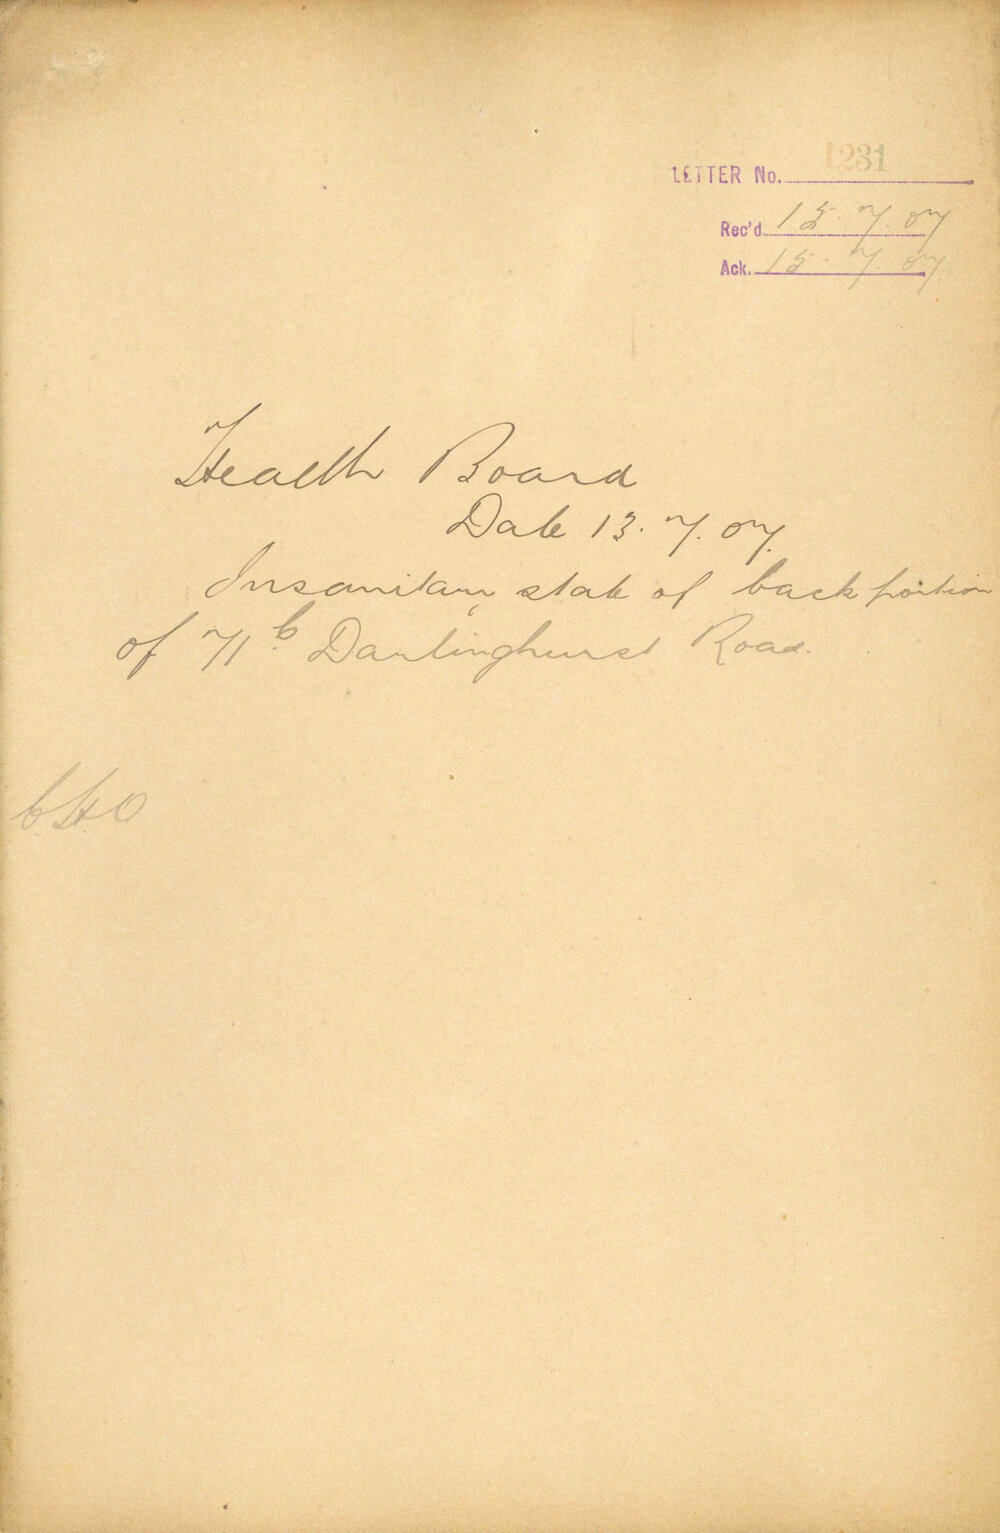 LETTER No. 1231
Rec'd 15.7.07
Ack. 15.7.07
Health Board
Date 13.7.07.
Insanitary state of back portion
of 71b Darlinghurst Road.
C.H.O